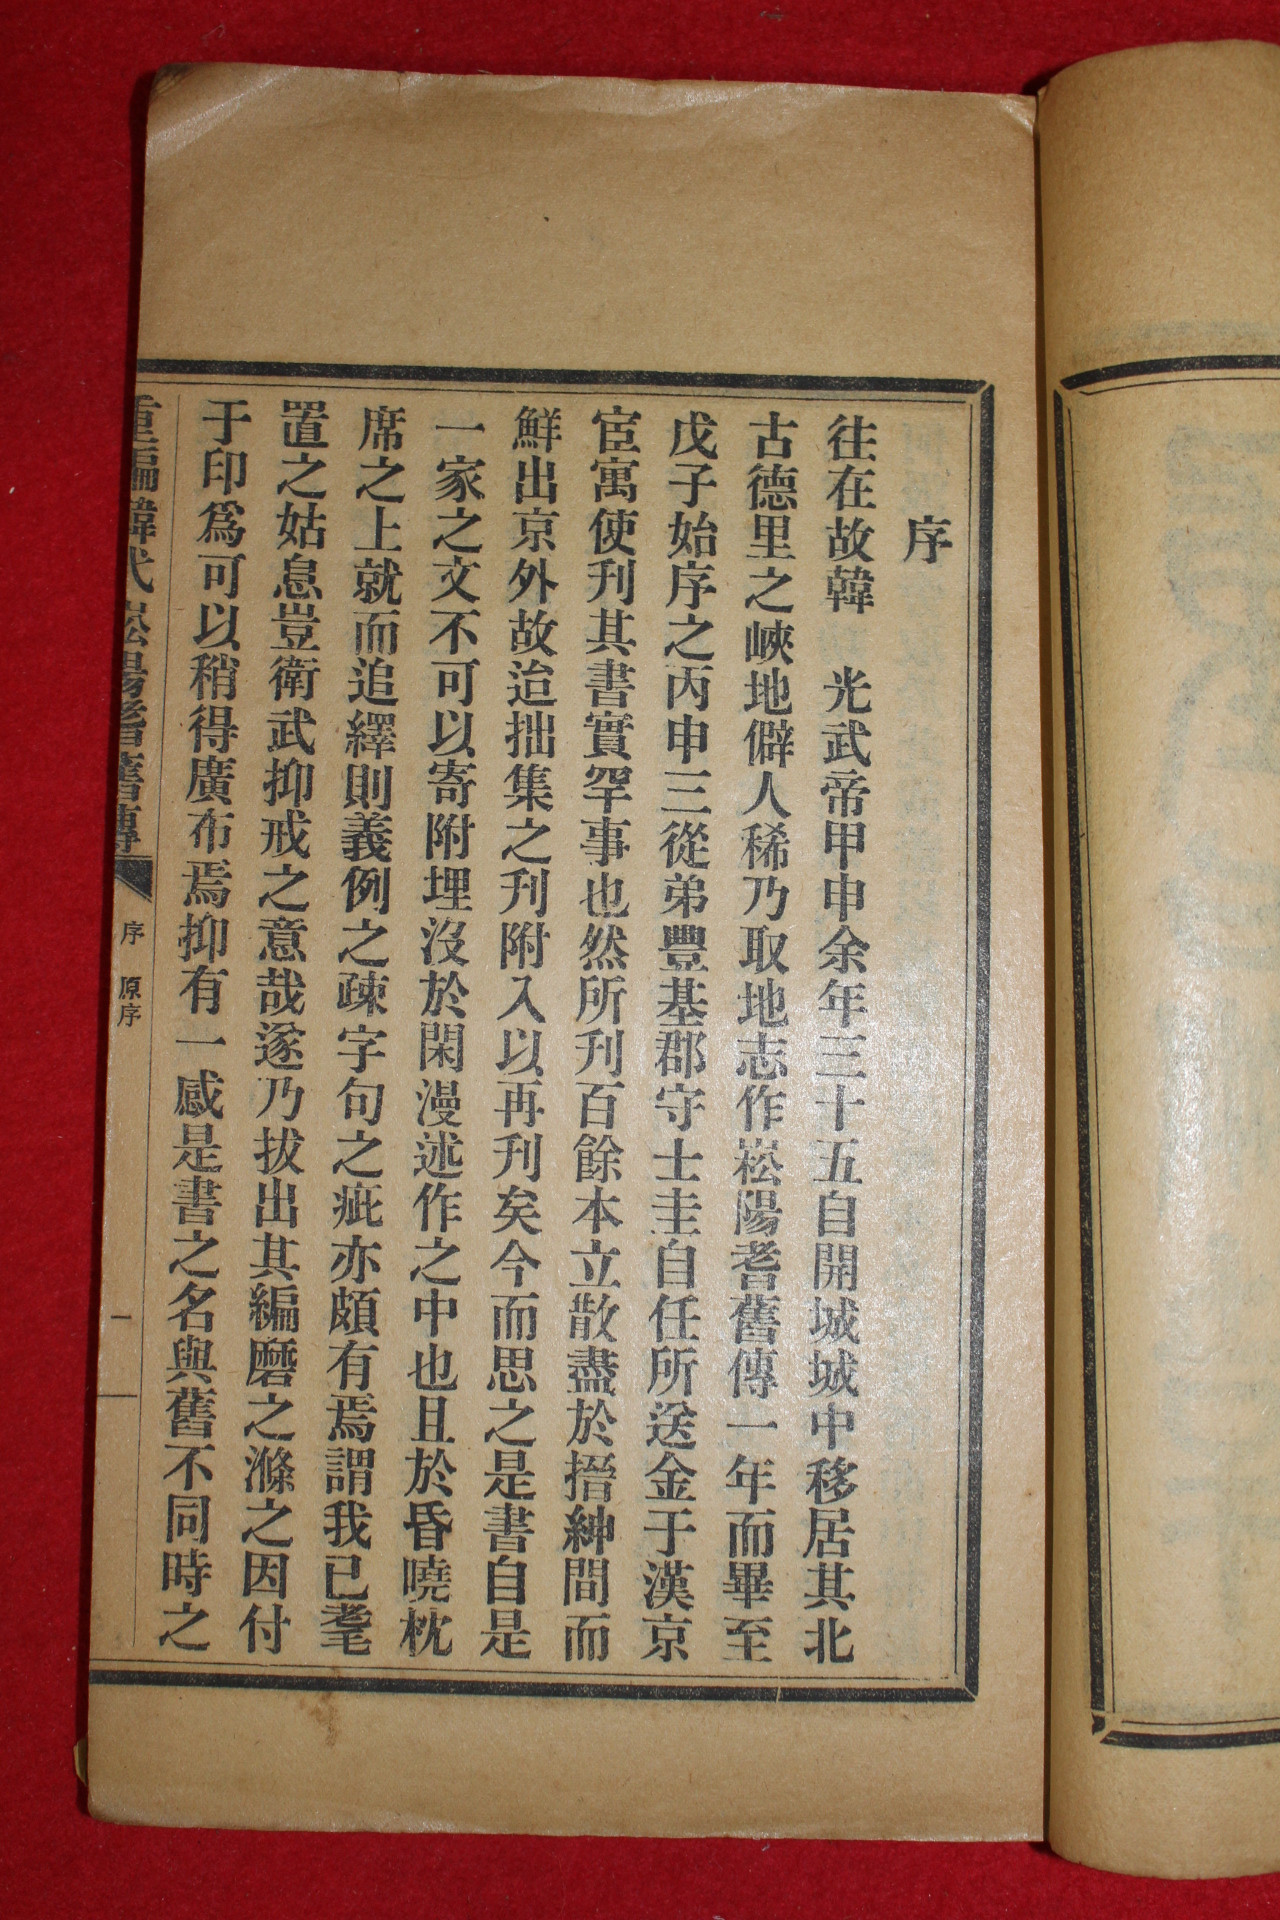 序
往在故韓　光武帝甲申余年三十五自開城城中移居其北
古德里之峽地僻人稀乃取地志作崧陽耆舊傳一年而畢至
戊子始序之丙申三從弟豐基郡守士圭自任所送金于漢京
宦寓使刊其書實罕事也然所刊百餘本立散盡於搢紳間而
鮮出京外故迨拙集之刊附入以再刊矣今而思之是書自是
一家之文不可以寄附埋沒於閑漫述作之中也且於昏曉枕
席之上就而追繹則義例之疎字句之疵亦頗有焉謂我已耄
置之姑息豈衛武抑戒之意哉遂乃拔出其編磨之滌之因付
于印爲可以稍得廣布焉抑有一感是書之名與舊不同時之
重編韓代崧陽耆舊傳
序　原序
一